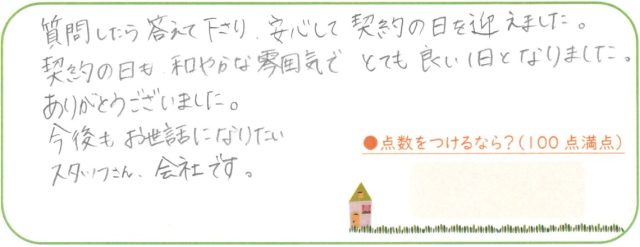 質問したら答えて下さり、安心して 契約の日を迎えました。
契約の日も 和やかな雰囲気で とても 良い1日となりました。
ありがとうございました。
今後も お世話になりたい
スタッフさん、会社です。
●点数をつけるなら?(100点満点)